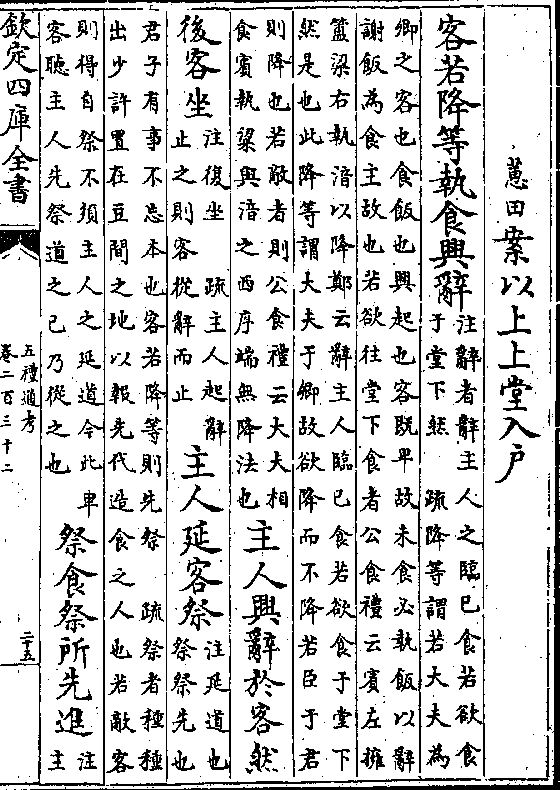 蕙田案以上上堂入戶
客若降等執食興辭
注辭者辭主人之臨已食若欲食
于堂下然 疏降等謂若大夫為
卿之客也食飯也興起也客既卑故未食必執飯以辭
謝飯為食主故也若欲往堂下食者公食禮云賓左擁
簠梁右執湆以降鄭云辭主人臨已食若欲食于堂下
然是也此降等謂大夫于卿故欲降而不降若臣于君
則降也若敵者則公食禮云大夫相
食賓執粱與湆之西序端無降法也
主人興辭於客然
後客坐
注復坐 疏主人起辭
止之則客從辭而止
主人延客祭
注延道也
祭祭先也
君子有事不忘本也客若降等則先祭 疏祭者種種
出少許置在豆間之地以報先代造食之人也若敵客
則得自祭不須主人之延道今此卑
客聽主人先祭道之已乃從之也
祭食祭所先進
注
主
欽定四庫全書
五禮通考
卷二百三十二
二十五